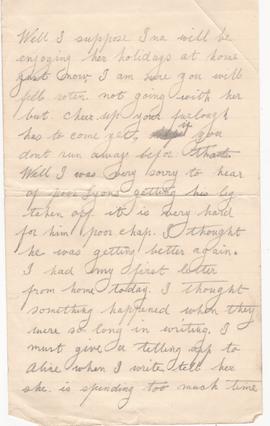 Well I suppose Ina will be
enjoying her holidays at home
just now, I am sure you will
fell roten not going with her
but cheer up your furlough
has to come yet, if you
don't run away befor that.
Well I was very sorry to hear
of poor Lyons getting his leg
taken off it is very hard
for him poor chap. I thought
he was getting better again.
I had my first letter
from home today. I thought
something happened when they
were so long in writing. I
must give a telling up to
Alice when I write tell her
she is spending too much time